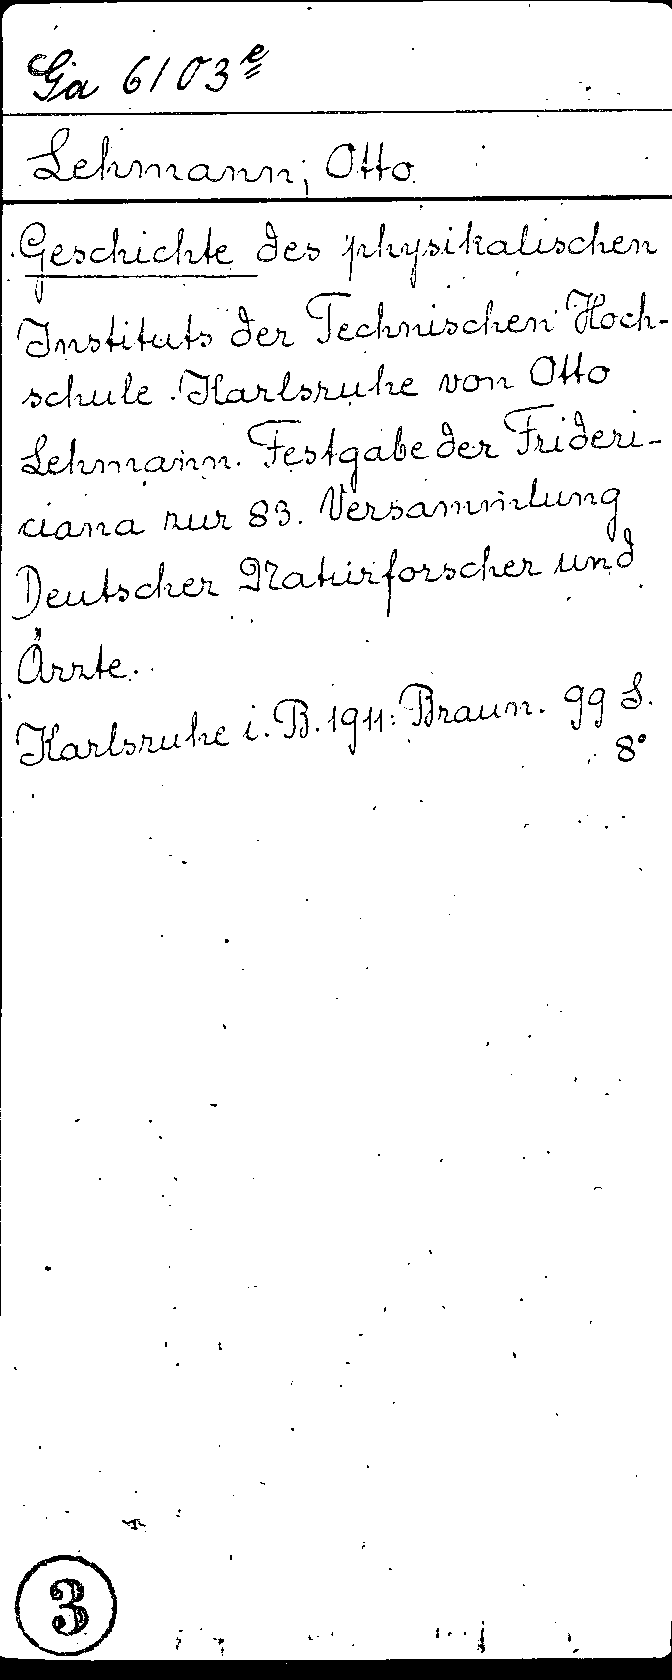 Ga 6103e
Lehmann, Otto.
Geschichte des physikalischen
Instituts der Technischen Hoch-
schule Karlsruhe von Otto
Lehmann. Festgabe der Frideri-
ciana zur 83. Versammlung
Deutscher Naturforscher und
Ärzte.
Karlsruhe i. B. 1911: Braun. 99 S.
8°
3